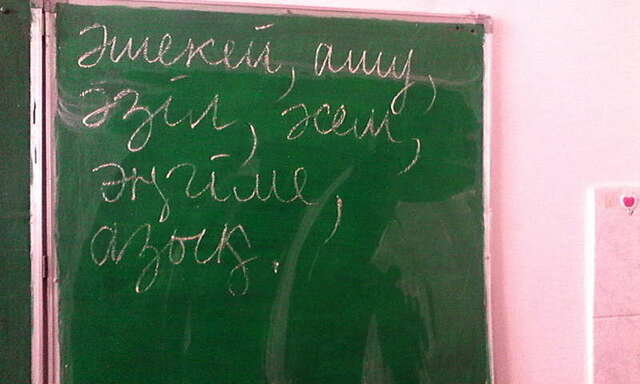 әшекей, ашу,
әзіл, әсем,
әңгіме,
азық.